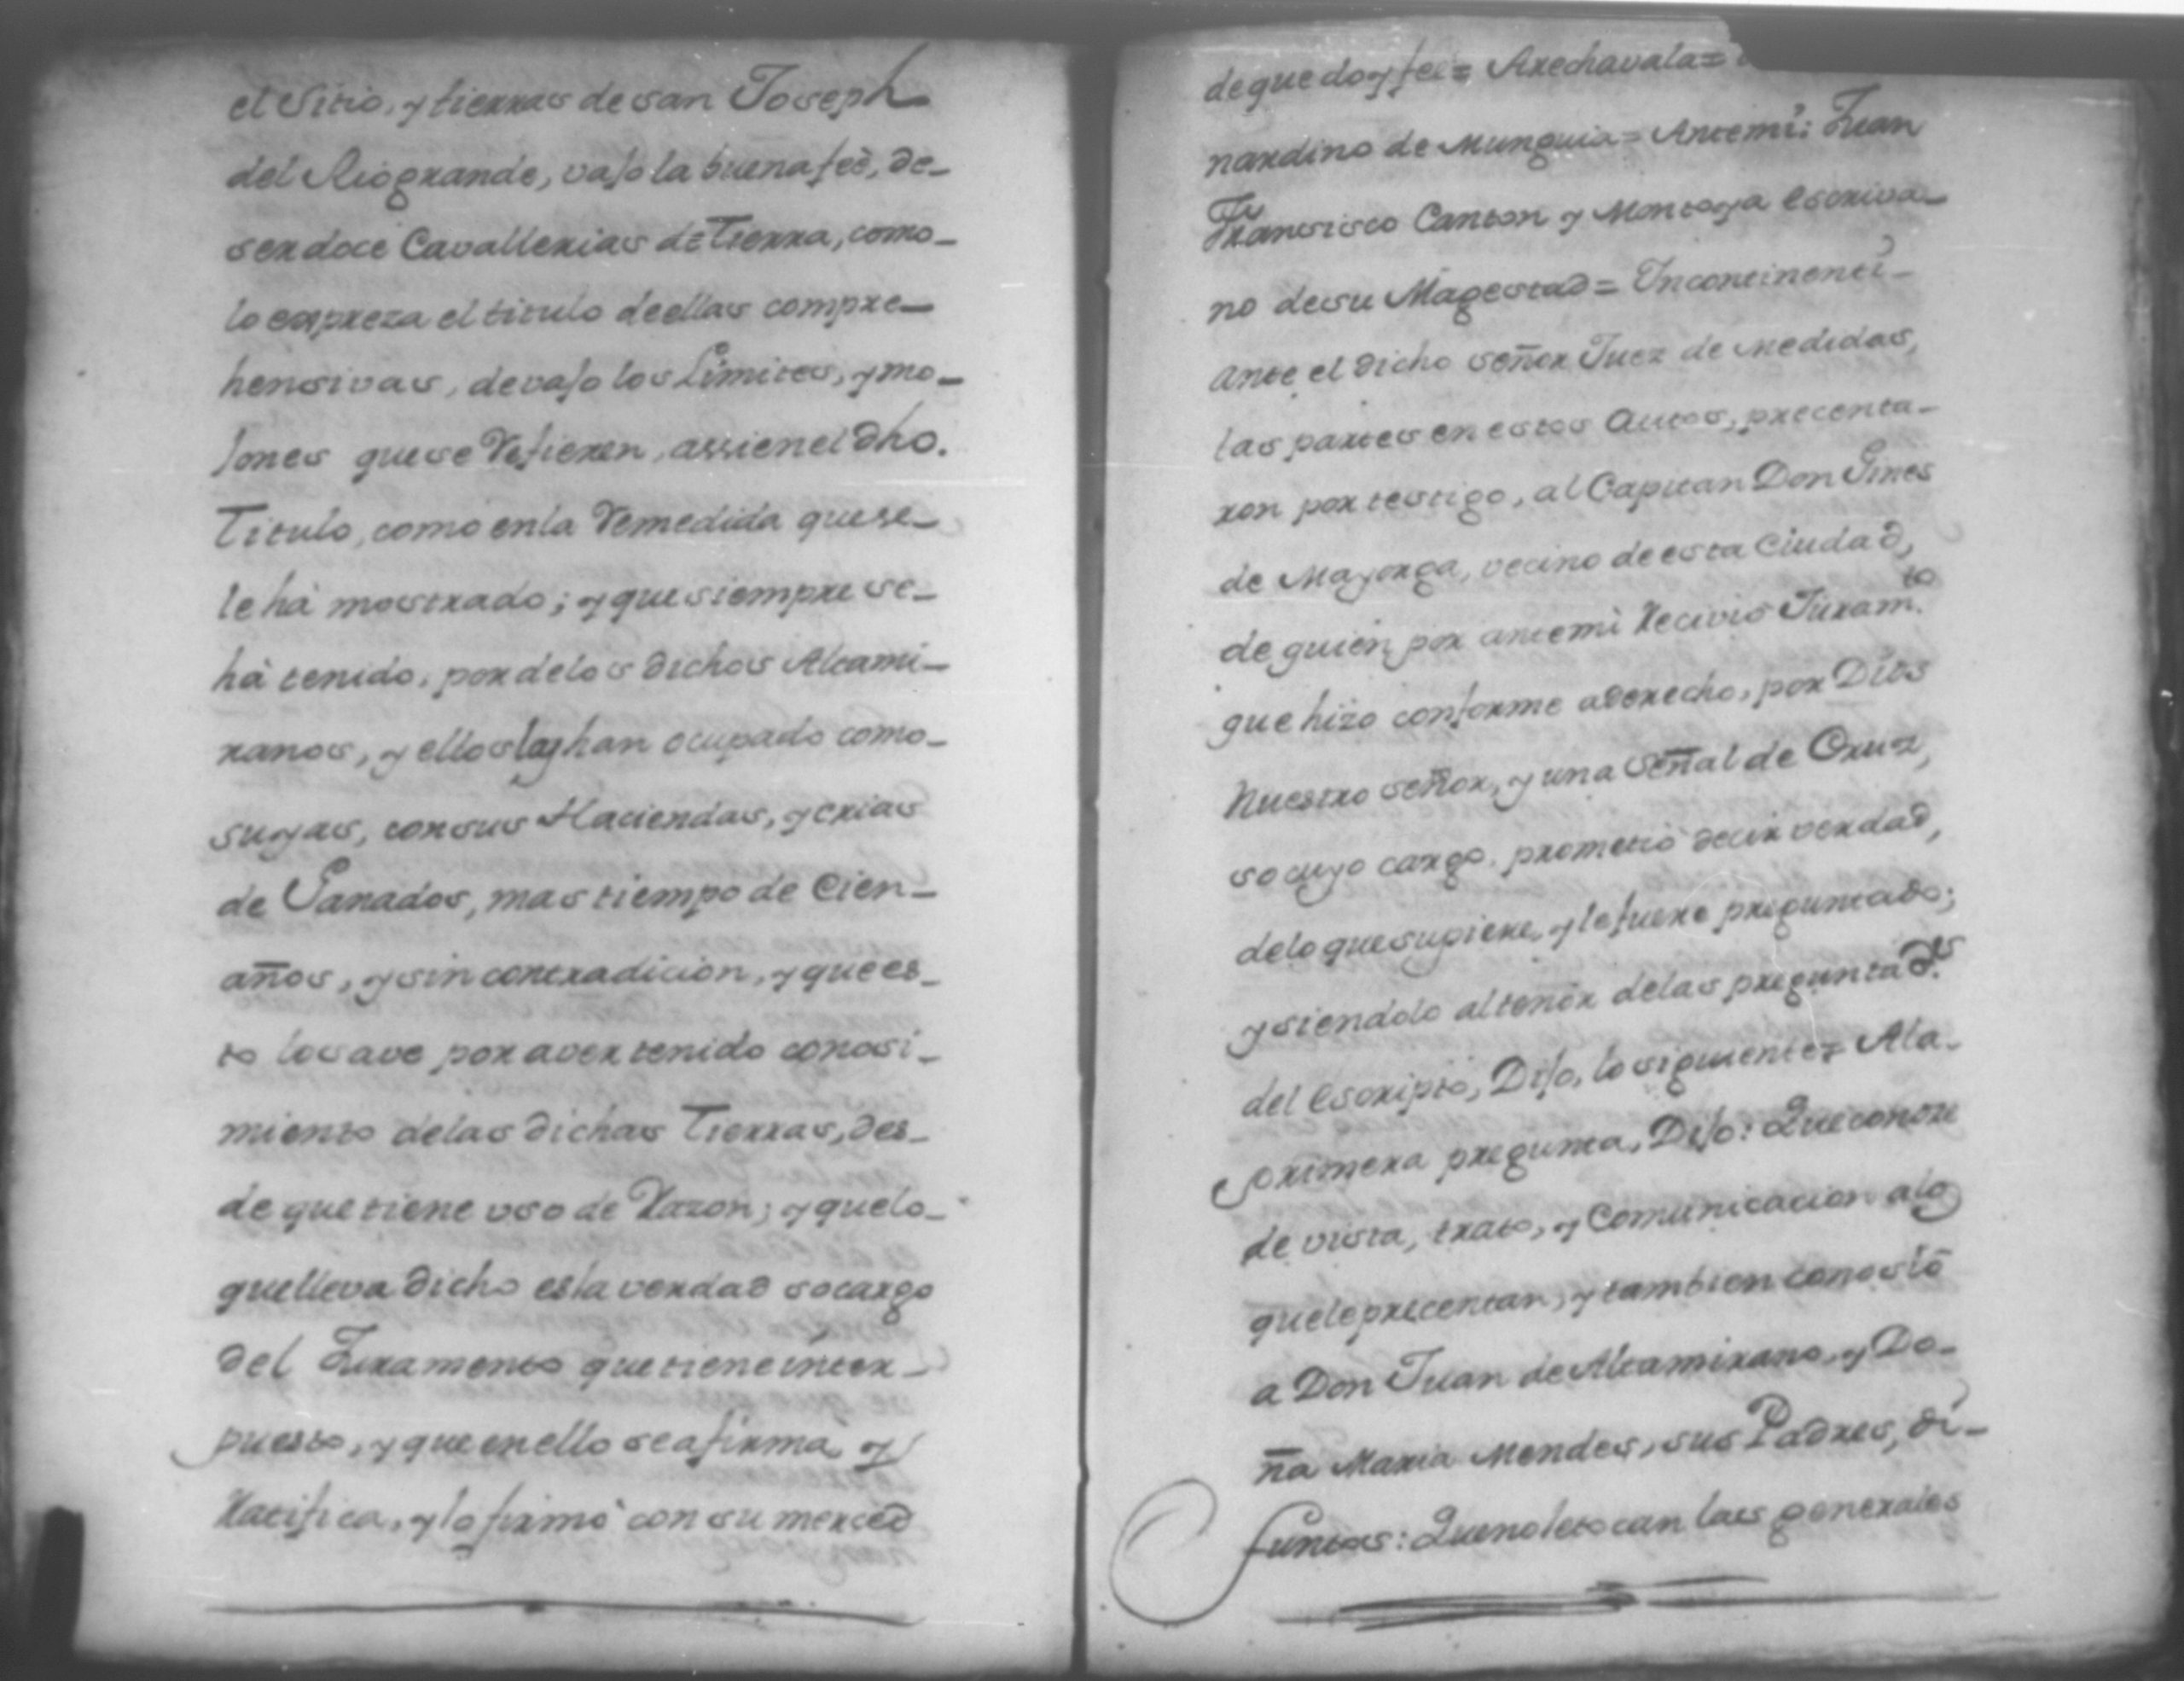 el Sitio, y tierras de san Joseph
del Riogrande, vajo la buena feè, de-
ser doce Cavallerias de Tierra, como-
lo expreza el titulo de ellas compre-
hensivas, devajo los Limites, y mo-
jones que se Refieren, assi en el dho.
Titulo, como en la Remedida que se-
le hà mostrado; y que siempre se-
hà tenido, por de los dichos Altami-
ranos, y ellos las han ocupado como-
suyas, con sus Haciendas, y crias
de Ganados, mas tiempo de Cien-
años, y sin contradicion, y que es-
to lo save por aver tenido conosi-
miento de las dichas Tierras, des-
de que tiene uso de Razon; y que lo-
que lleva dicho es la verdad so cargo
del Juramento que tiene inter-
puesto, y que en ello se afirma y
Ratifica, y lo firmò con su merced
de que doy fee = Arechavala =
nardino de Munguia = Antemi: Juan
Francisco Canton y Montoya Escriva-
no de su Magestad = Incontinenti-
ante el dicho señor Juez de medidas,
las partes en estos Autos, precenta-
ron por testigo, al Capitan Don Gines
de Mayorga, vecino de esta Ciudad,
de quien por antemi Recivio Juram.to
que hizo conforme a derecho, por Dios
Nuestro señor, y una señal de Cruz,
so cuyo cargo prometiò decir verdad,
de lo que supiere, y le fuere preguntado;
y siendolo al tenor de las preguntas
del Escripto, Dijo, lo siguiente = A la-
primera pregunta, Dijo: Que conose
de vista, trato, y Comunicacion a los
que le precentan, y tambien conosiò
a Don Juan de Altamirano, y Do-
ña Maria Mendes, sus Padres, di-
funtos: Que no le tocan las generales